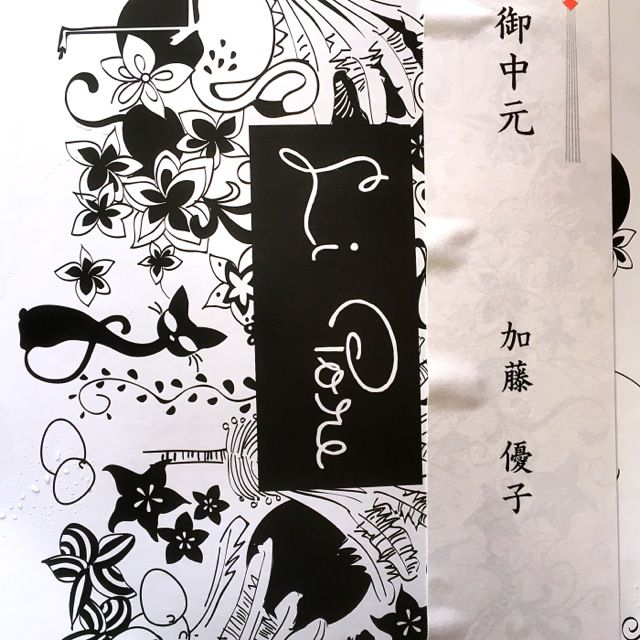 御中元
加藤 優子
Li Pore